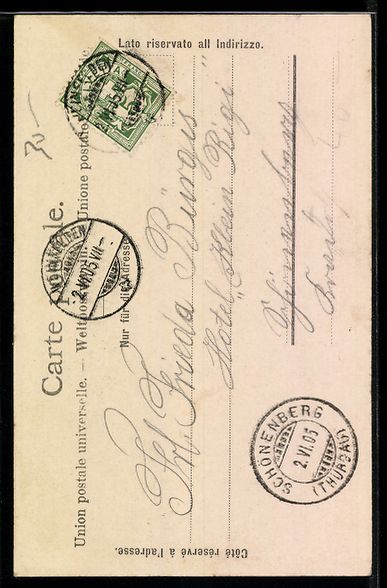 Carte postale.
Union postale universelle. — Weltpostverein. — Unione postale
Nur für die Adresse.
Lato riservato all Indirizzo.
Côté réservé à l'adresse.
30—
Frl. Frieda Bürgis
Hotel "Klein Rigi"
Schönenberg
2.VI.05 VII—
SCHÖNENBERG
2.VI.05
(THURGAU)